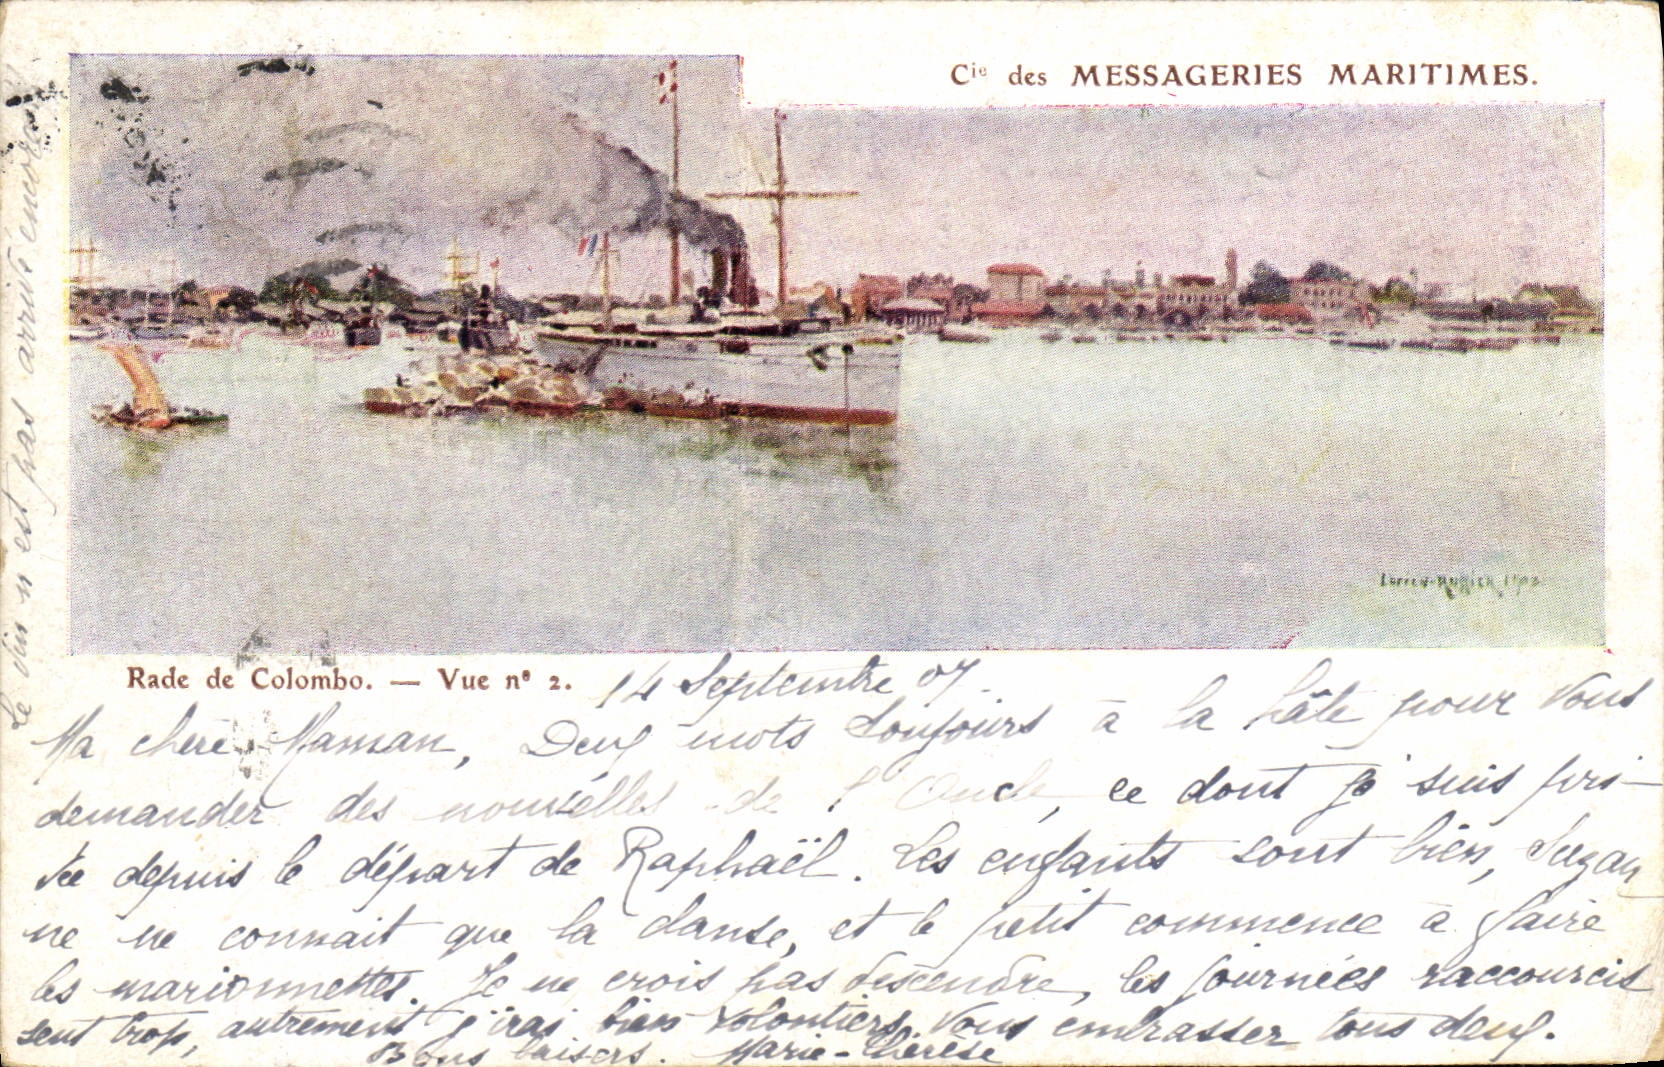 Cie des MESSAGERIES MARITIMES.
Rade de Colombo. — Vue nº 2.
14 Septembre 07
Ma chère Maman, Deux mots toujours à la hâte pour vous
demander des nouvelles de l'Oncle, ce dont j'suis pri-
vée depuis le départ de Raphaël. Les enfants sont bien, Suzan
ne ne connait que la danse, et le petit commence à faire
les marionnettes. Je ne crois pas descendre, les journées raccourcis
sent trop, autrement j'irai bien volontiers. Vous embrasser tous deux.
Bons baisers. Marie-Thérèse
Le vin n'est pas arrivé encore